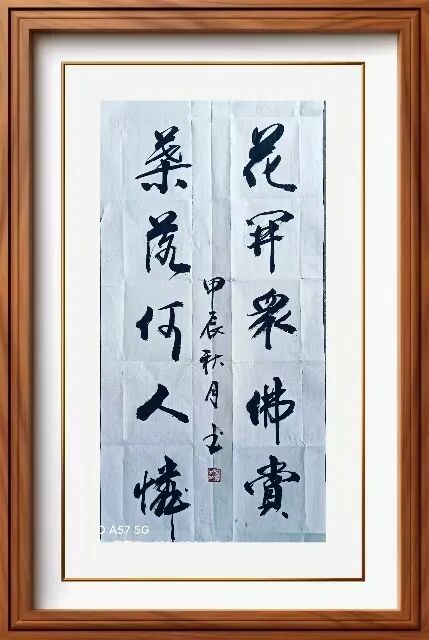 花開衆佛賞
葉落何人憐
甲辰秋月书
A57 5G